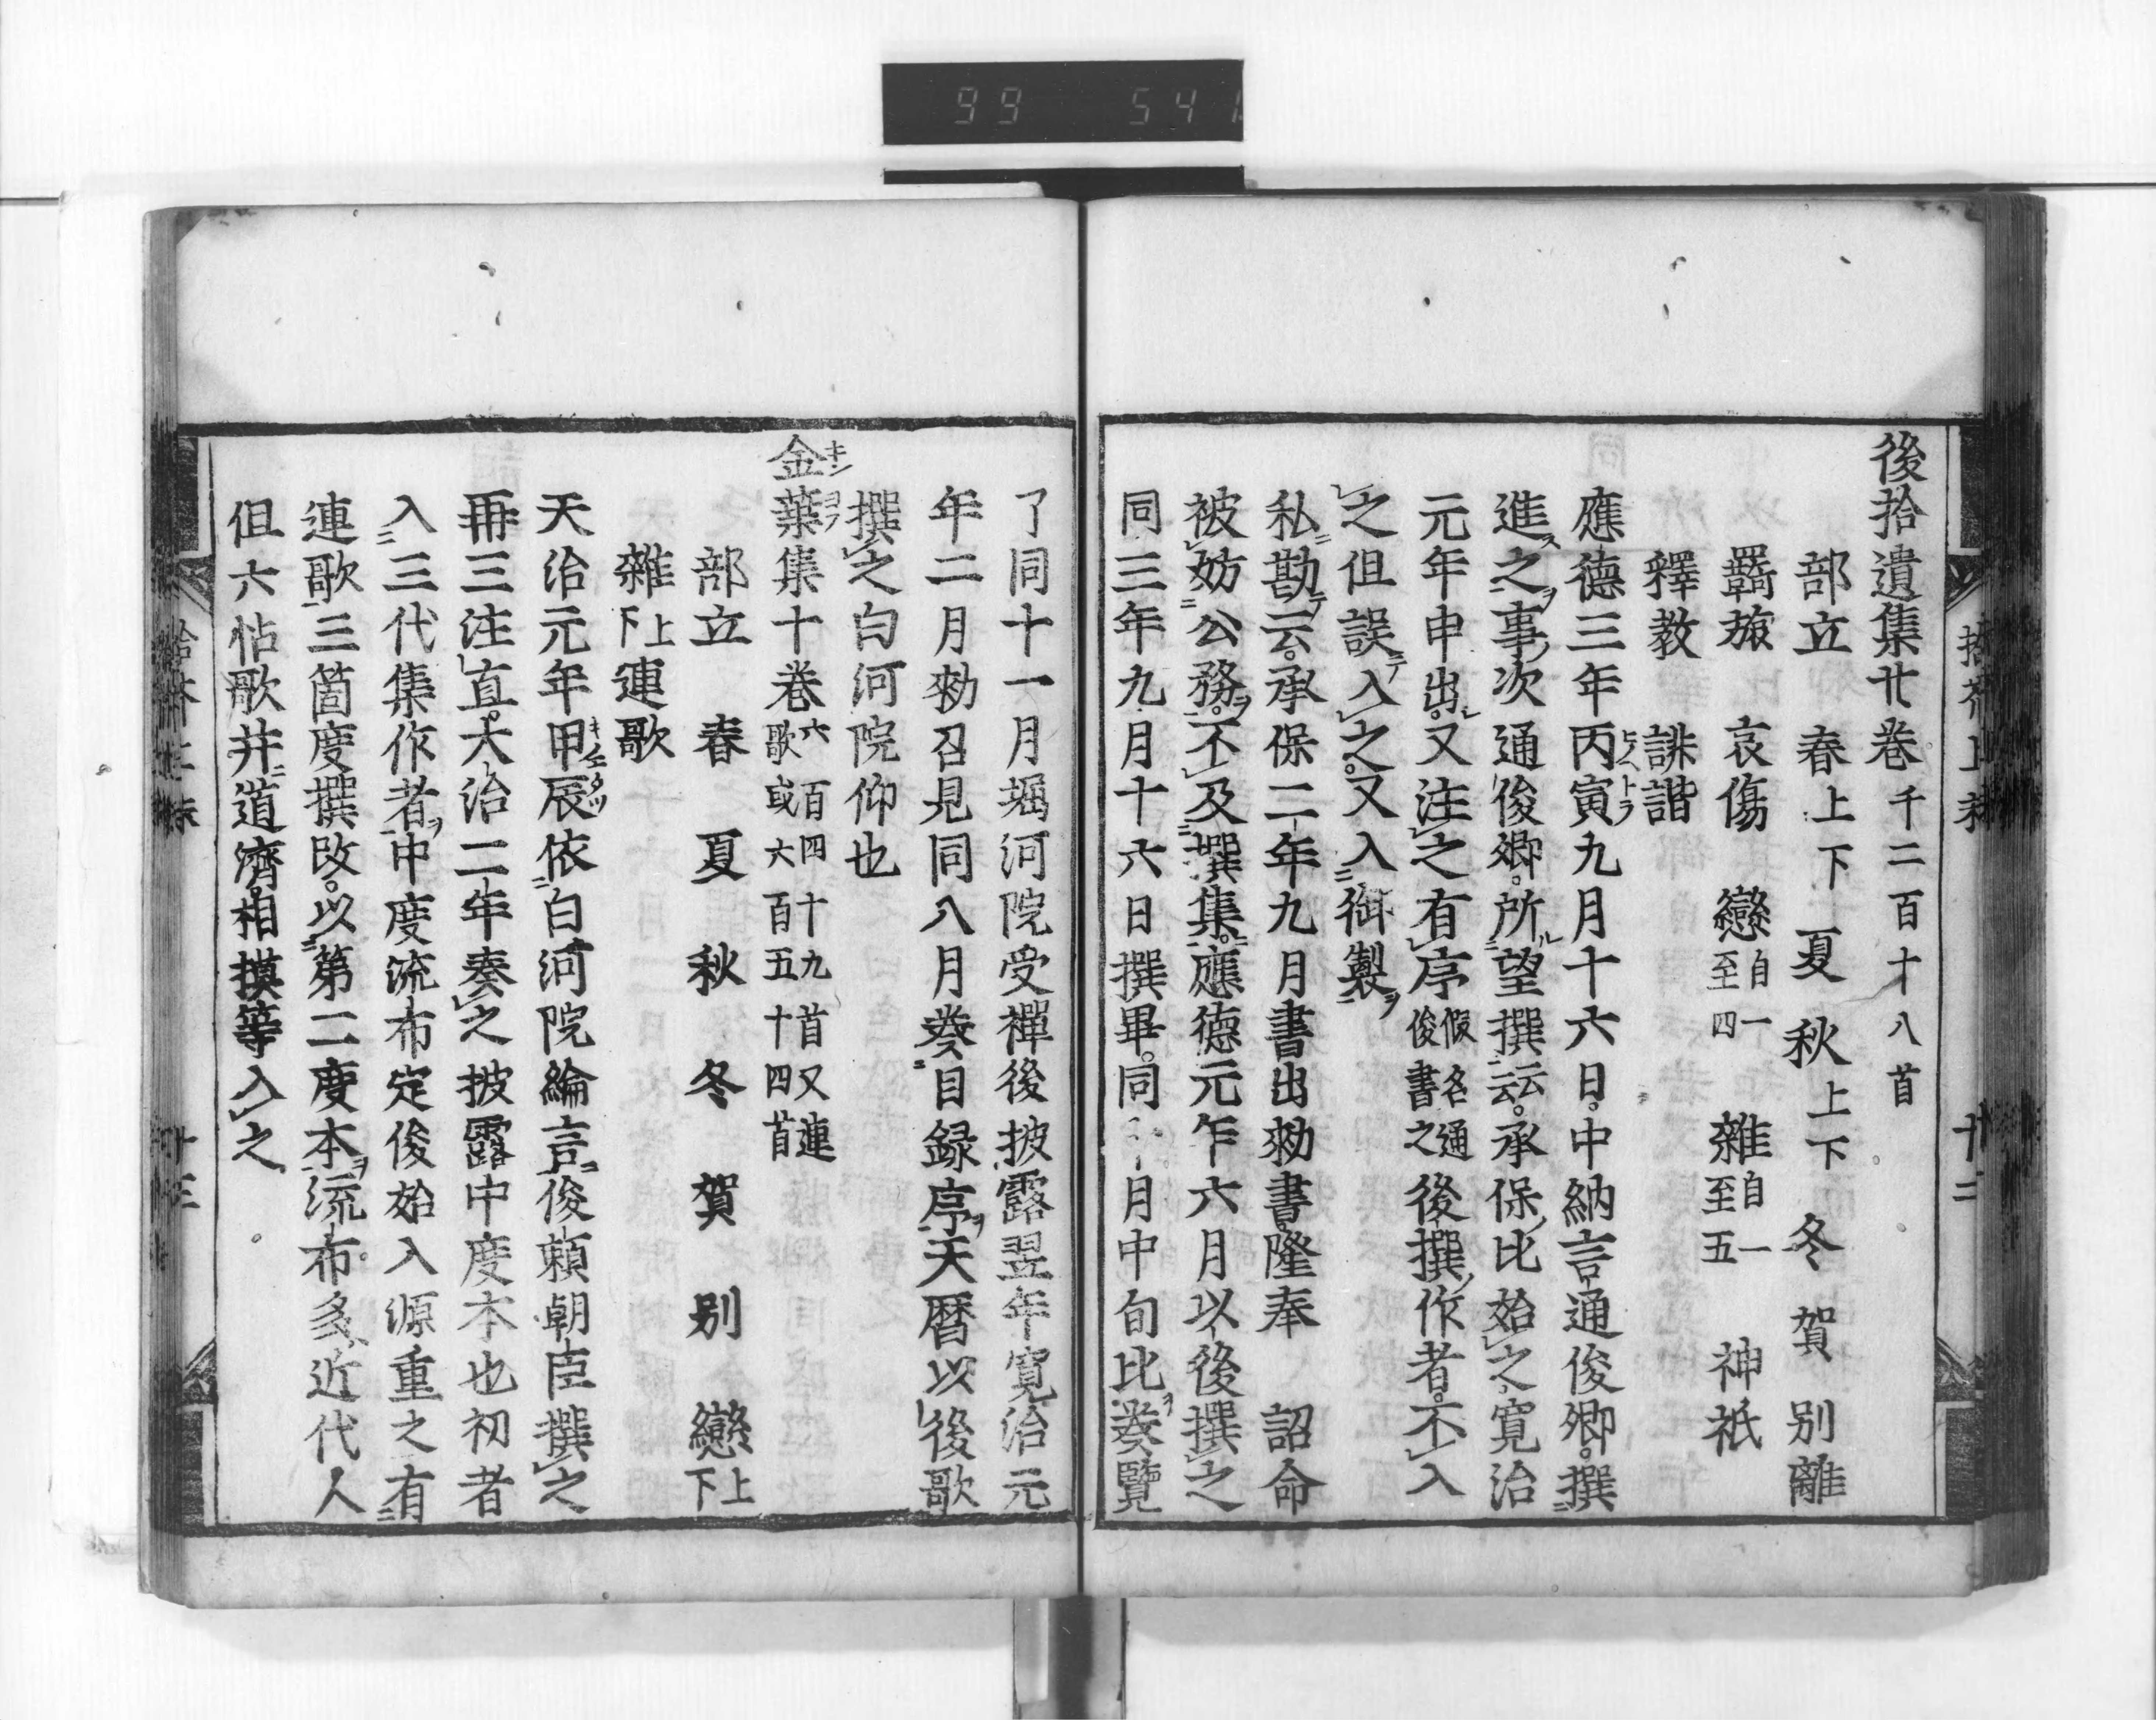 99 541
後拾遺集廿巻 千二百十八首
部立 春上下 夏 秋上下 冬 賀 别離
羇旅 哀傷 戀自一至四 雜自一至五 神祇
釋教 誹諧
應德三年丙寅九月十六日中納言通俊卿撰
進之事次通俊卿所望撰云云承保比始之寛治
元年申出又注之有序假名通俊書之後撰作者不入
之但誤入之又入御製
私勘云承保二年九月書出勅書隆奉 詔命
被妨公務不及撰集應德元乍六月以後撰之
同三年九月十六日撰畢同 月中旬比奏覽
了同十一月堀河院受禪後披露翌年寛治元
年二月勅召見同八月奏目録序天暦以後歌
撰之白河院仰也
金葉集十巻六百四十九首又連歌或六百五十四首
部立 春 夏 秋 冬 賀 别 戀上下
雜上下連歌
天治元年甲辰依白河院綸言俊頼朝臣撰之
再三注直大治二年奏之披露中度本也初者
入三代集作者中度流布定俊始入源重之有
連歌三箇度撰改以第二度本流布多近代人
但六帖歌井道濟相摸等入之